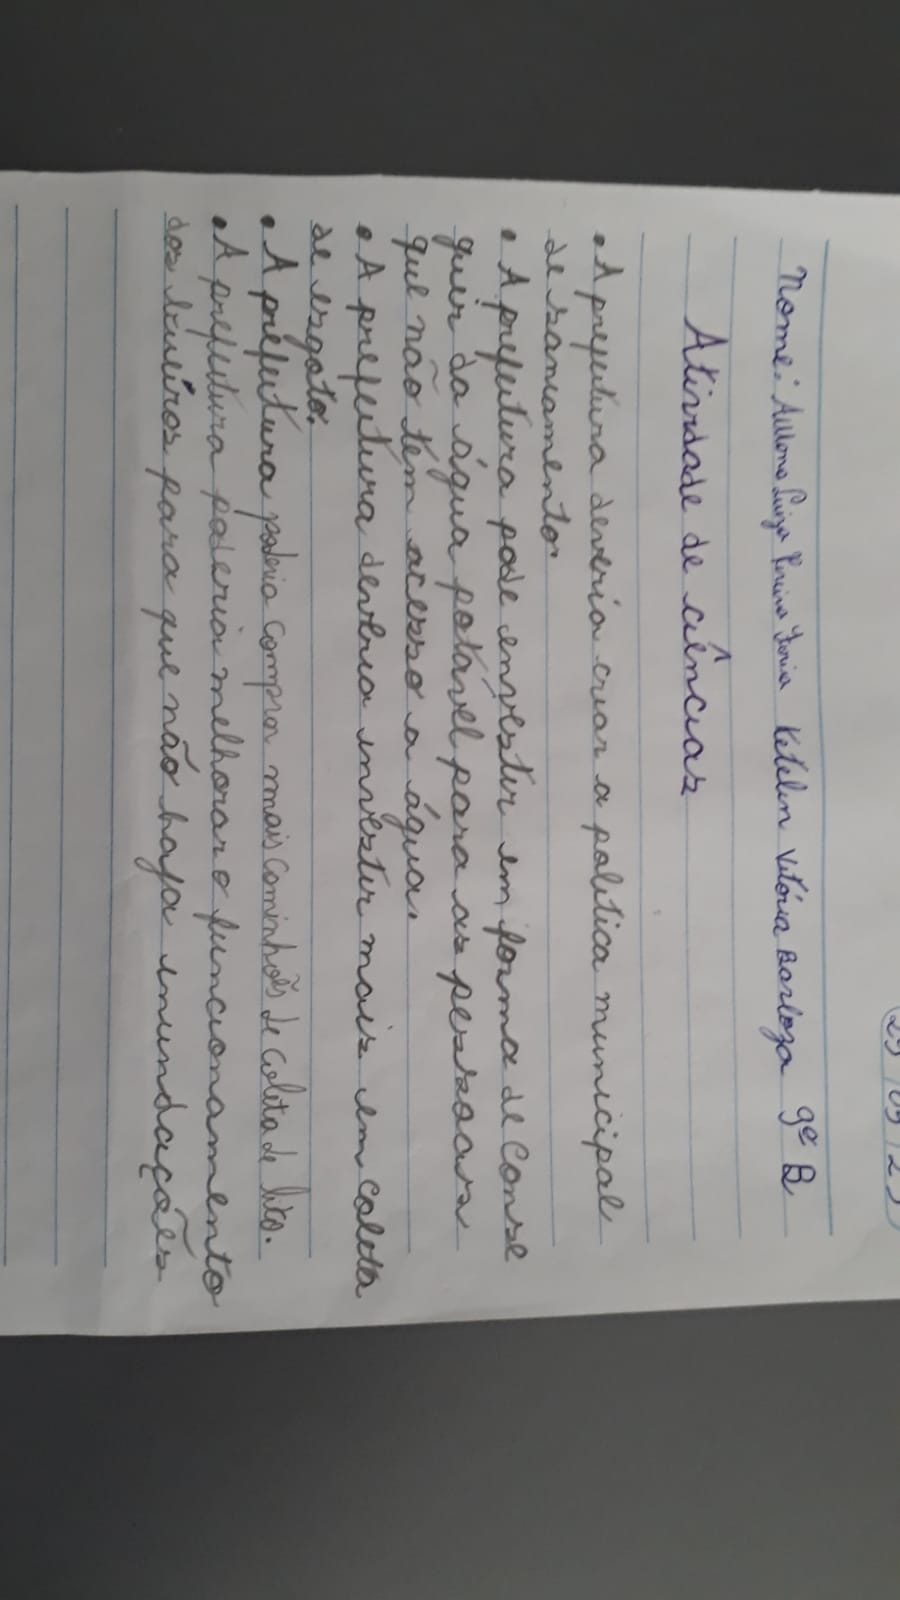 Nome: Luiza Ketelen Vitória Barboza 9º B
Atividade de ciências
• A prefeitura deveria criar a politica municipal
de saneamento.
• A prefeitura pode envestir em forma de conse
guir da água potável para as pessoas
que não têm acesso a água.
• A prefeitura deveria investir mais em coleta
de esgoto.
• A prefeitura poderia comprar mais caminhões de coleta de lixo.
• A prefeitura poderia melhorar o funcionamento
dos bueiros para que não haja inundações